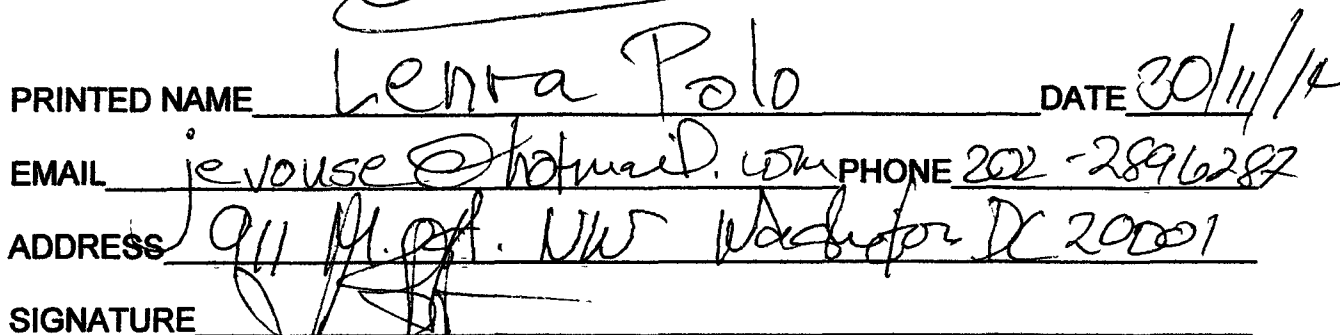 PRINTED NAME Lenra Polo DATE 30/11/14
EMAIL jevouse@hotmail.com PHONE 202-2896287
ADDRESS 911 M. st. NW Washington DC 20001
SIGNATURE